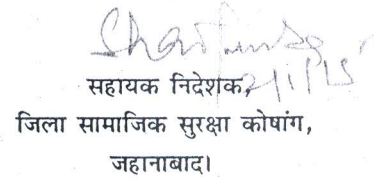 सहायक निदेशक,
जिला सामाजिक सुरक्षा कोषांग,
जहानाबाद।